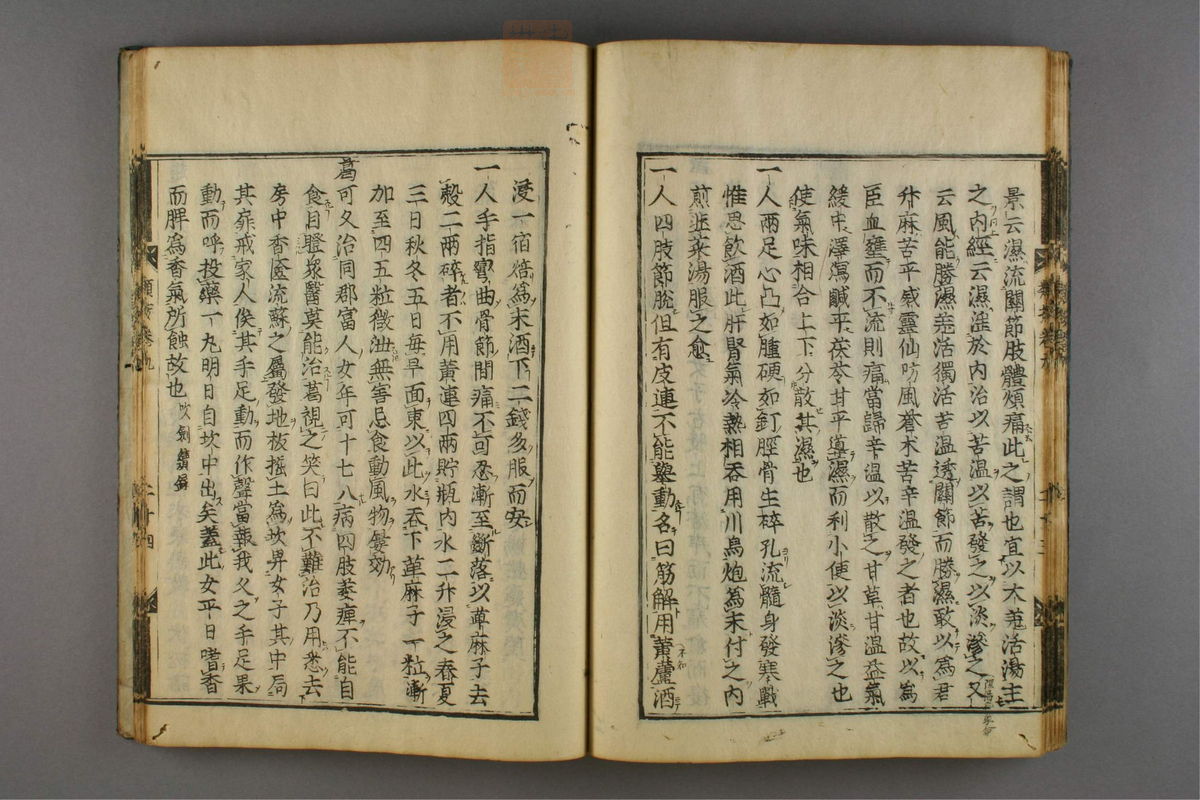 景云濕流關節肢體煩痛此之謂也宜以大羌活湯主
之内經云濕淫於内治以苦溫以苦發之以淡滲之又
云風能勝濕羌活獨活苦溫透關節而勝濕敢以為君
升麻苦平威靈仙防風蒼朮苦辛溫發之者也故以為
臣血壅而不流則痛當歸辛溫以散之甘草甘溫益氣
緩中澤瀉鹹平茯苓甘平導濕而利小便以淡滲之也
使氣味相合上下分散其濕也
一人兩足心凸如腫硬如釘脛骨生碎孔流髓身發寒戰
惟思飲酒此肝腎氣冷熱相吞用川烏炮為末付之内
煎韭菜湯服之愈
一人四肢節脫但有皮連不能舉動名曰筋解用黃蘆酒
浸一宿焙為末酒下二錢多服而安
一人手指彎曲骨節間痛不可忍漸至斷落以草麻子去
殼二兩碎者不用黃連四兩貯瓶内水二升浸之春夏
三日秋冬五日每早面東以此水吞下草麻子一粒漸
加至四五粒微泄無害忌食動風物屢効
葛可久治同郡富人女年可十七八病四肢萎痺不能自
食目瞪衆醫莫能治葛視之笑曰此不難治乃用悉去
房中香奩流蘇之屬發地板掘土為坎舁女子其中扃
其扉戒家人俟其手足動而作聲當報我久之手足果
動而呼投藥一丸明日自坎中出矣蓋此女平日嗜香
而脾為香氣所蝕故也 吹劍續錄
類案卷九
二十四